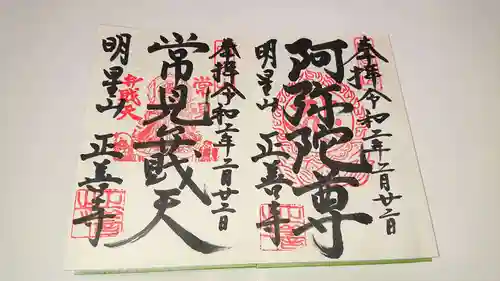 奉拝 令和二年二月廿二日
阿弥陀尊
明星山 正善寺
奉拝 令和二年二月廿二日
常見歳天
明星山 正善寺